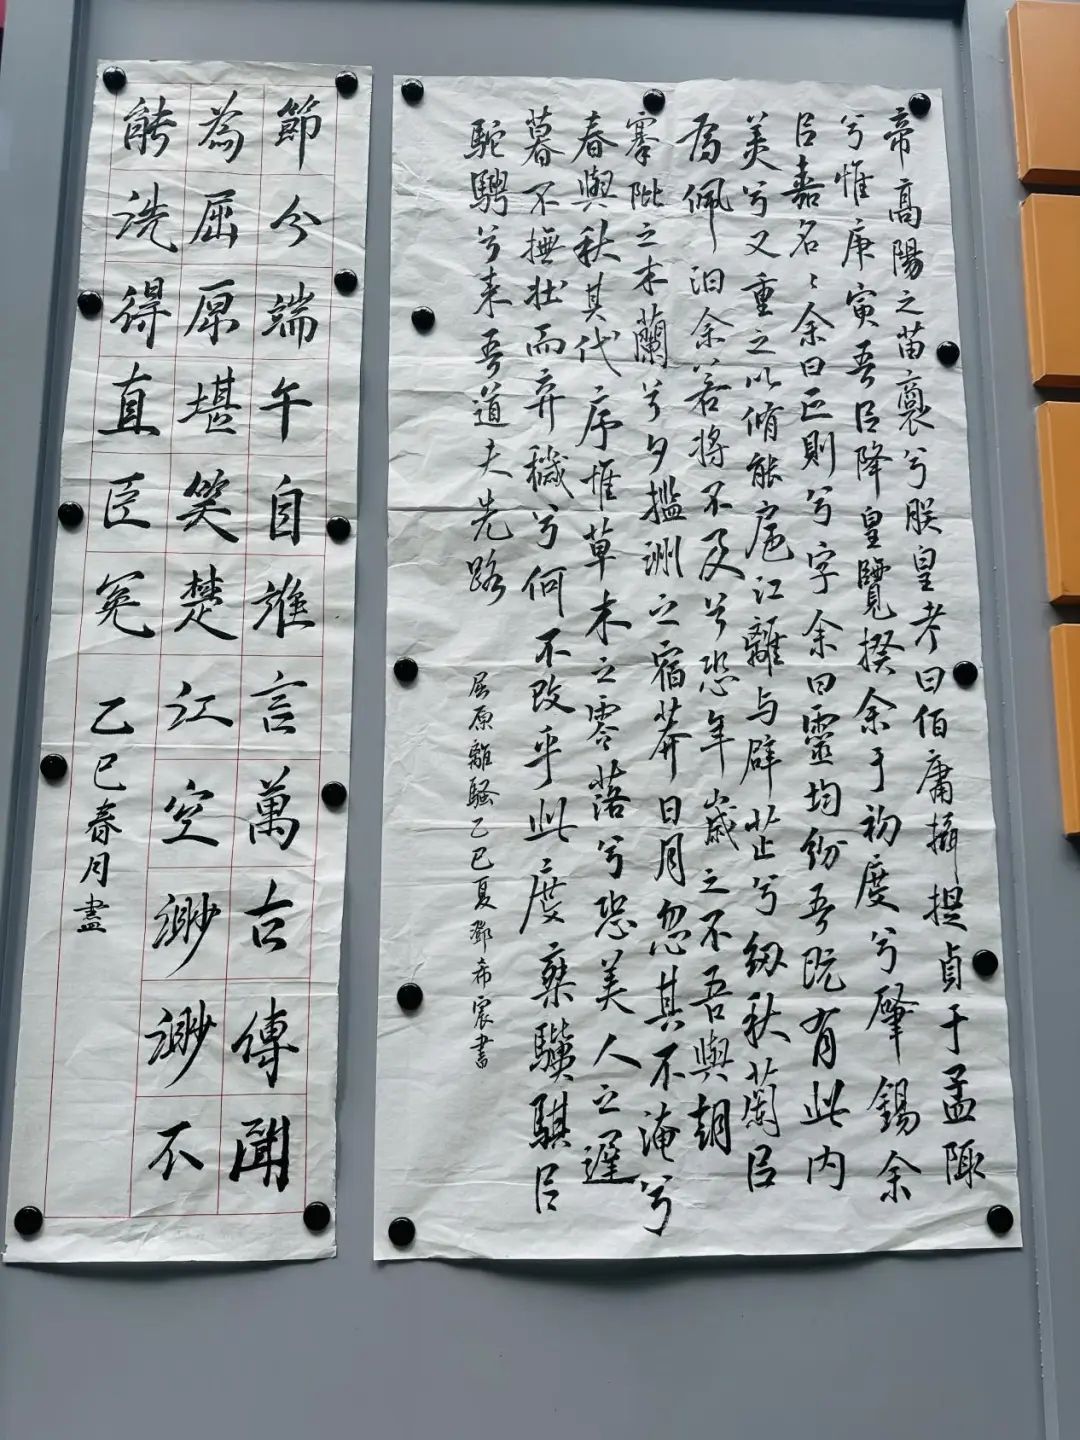 帝高陽之苗裔兮朕皇考曰伯庸攝提貞于孟陬
兮惟庚寅吾㠯降皇覽揆余于初度兮肇錫余
㠯嘉名〻余曰正則兮字余曰靈均紛吾既有此内
美兮又重之以脩能扈江離与辟芷兮紉秋蘭㠯
為佩汩余若將不及兮恐年歲之不吾與朝
搴阰之木蘭兮夕攬洲之宿莽日月忽其不淹兮
春與秋其代序惟草木之零落兮恐美人之遲
暮不撫壯而弃穢兮何不改乎此度椉驥騏㠯
駝騁兮来吾道夫先路
屈原離騷乙巳夏鄧希宸書
節分端午自誰言萬古傳聞
為屈原堪笑楚江空渺渺不
能洗得直臣冤
乙巳春月書